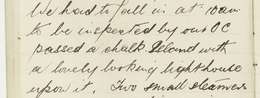 We had to fall in at 10am
to be inspected by our OC
passed a chalk Island with
a lovely looking lighthouse
upon it. Two small steamers